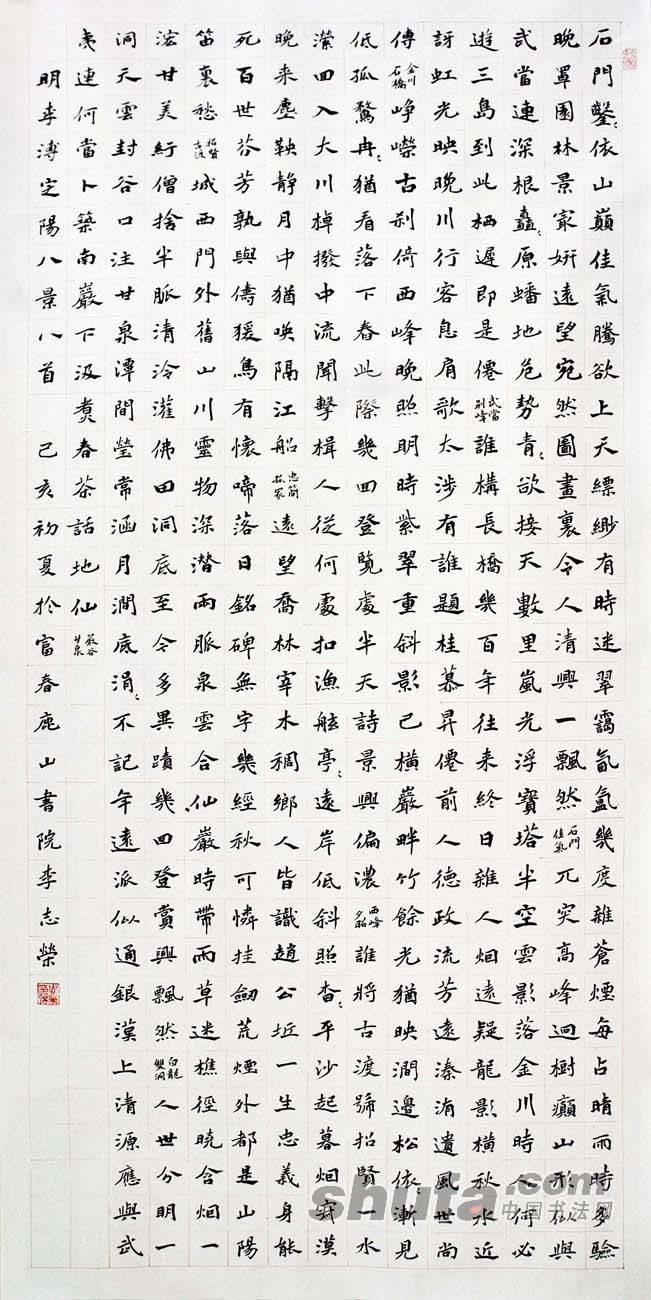 石門鑿鑿依山巔佳氣騰欲上天縹緲有時迷翠靄氤氳幾度雜蒼煙每占晴雨時多驗
晚罩園林景寂妍遠望宛然圖畫裏令人清興一飄然石門佳氣兀突高峰迥樹巔山形似與
武當連深根矗矗原蟠地危勢青青欲接天數里嵐光浮寶塔半空雲影落金川時人何必
遊三島到此栖遲即是僊武當別峰誰構長橋幾百年往來終日雜人烟遠疑龍影橫秋水近
訝虹光映晚川行客息肩歌太涉有誰題桂慕昇僊前人德政流芳遠溱洧遺風世尚
傳金川石橋崢嶸古刹倚西峰晚照明時紫翠重斜影已橫巖畔竹餘光猶映澗邊松依漸見
低孤鶩冉冉猶看落下舂此際幾回登覽處半天詩景興偏濃西峰夕照誰將古渡號招賢一水
瀠回入大川棹撥中流聞擊楫人從何處扣漁舷亭亭遠岸低斜照杳杳平沙起暮烟寂漠
晚來塵鞅靜月中猶喚隔江船遠望喬林宰木稠鄉人皆識趙公坵一生忠義身能
死百世芬芳孰與儔猨鳥有懷啼落日銘碑無字幾經秋可憐挂劒荒煙外都是山陽
笛裏愁城西門外舊山川靈物深潛兩脈泉雲合仙巖時帶雨草迷樵徑曉含烟一
泓甘美紆僧捨半脈清泠灌佛田洞底至令多異蹟幾回登賞興飄然白龍雙洞人世分明一
洞天雲封谷口注甘泉潭間瑩常涵月澗底涓涓不記年遠派似通銀漢上清源應與武
夷連何當卜築南巖下汲煑春茶話地仙巖谷甘泉
明李溥定陽八景八首 己亥初夏於富春鹿山書院李志榮
shufa.com
中国书法网